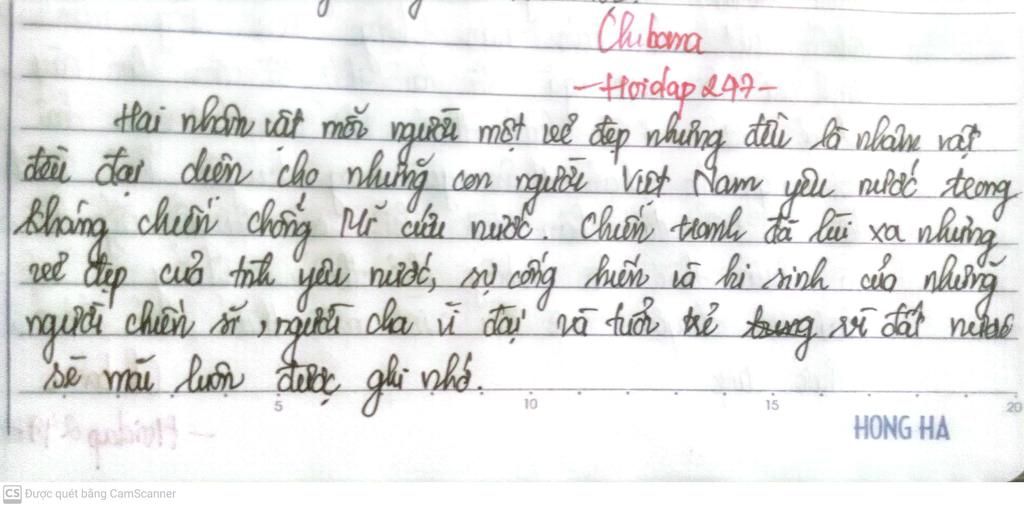 Chibama
-Hoidap247-
Hai nhân vật mỗi người một vẻ đẹp nhưng đều là nhân vật
đều đại diện cho những con người Việt Nam yêu nước trong
kháng chiến chống Mĩ cứu nước. Chiến tranh đã lùi xa nhưng
vẻ đẹp của tình yêu nước, sự cống hiến và hi sinh của những
người chiến sĩ, người cha vĩ đại và tuổi trẻ vì đất nước
sẽ mãi luôn được ghi nhớ.
5 10 15 20
HONG HA
CS Được quét bằng CamScanner